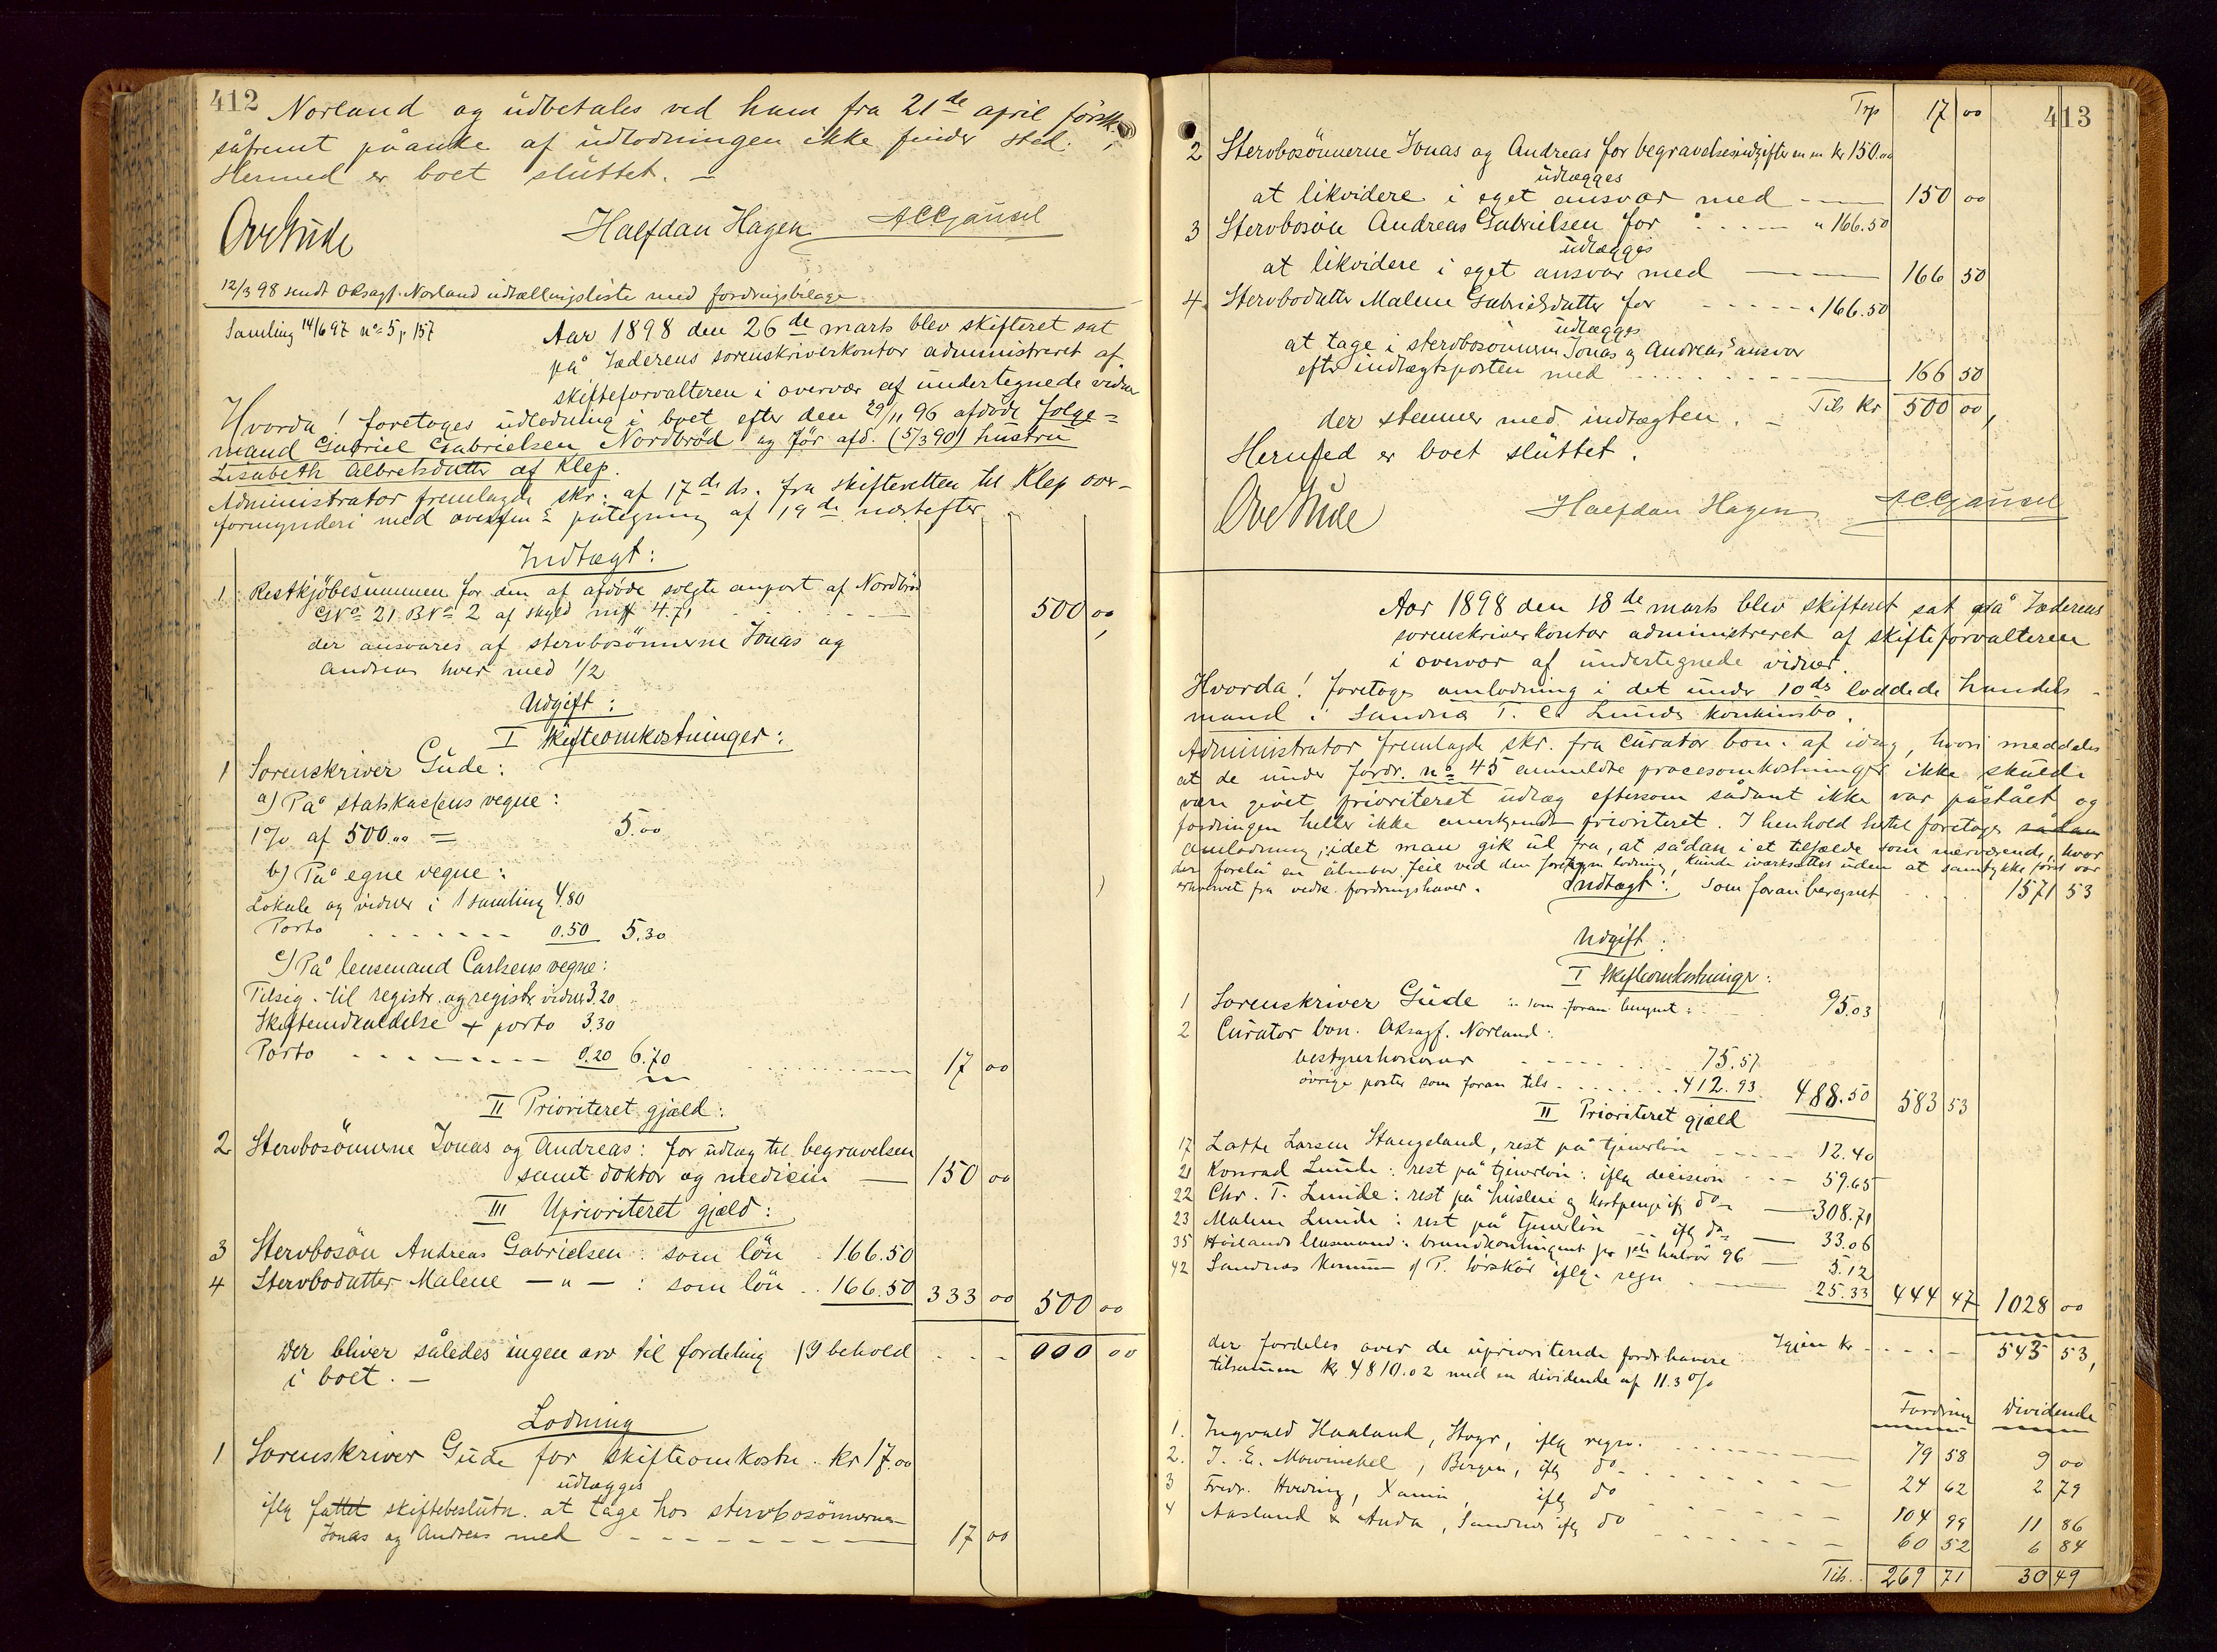 412
Norland og udbetales ved ham fra 21de april förstk.,
såfremt påanke af udlodningen ikke finder sted.
Hermed er boet sluttet. —
Ove Gude Halfdan Hagen ACGausel
12/3 98 sendt Oksagf. Norland udtællingsliste med fordringsbilage
Samling 14/6 97 no 5, p 157
Aar 1898 den 26de marts blev skifteret sat
på Jæderens sorenskriverkontor administreret af
skifteforvalteren i overvær af undertegnede vidner
Hvorda! foretoges udlodning i boet efter den 29/11 96 afdöde folge=
mand Gabriel Gabrielsen Nordbröd og för afd. (5/3 90) hustru
Lisabeth Albretsdatter af Klep.
Administrator fremlagde skr. af 17de ds. fra skifteretten til Klep over-
formynderi med påtegning af 19de næstefter
Indtægt:
1 Restkjöbesummen for den af afdöde solgte anpart af Nordbröd
GNo 21 BNo 2 af skyld mrk 4.71 500 00
der ansvares af stervbosönnerne Jonas og
Andreas hver med 1/2
Udgift:
I Skifteomkostninger:
1 Sorenskriver Gude:
a) På statskassens vegne:
1% af 500.00 = 5.00
b) På egne vegne:
Lokale og vidner i 1 samling 4.80
Porto 0.50 5.30
c) På lensmand Carlsens vegne:
Tilsig. til registr. og registr. vidner 3.20
Skifteindkaldelse + porto 3.30
Porto 0.20 6.70 17 00
II Prioriteret gjæld:
2 Stervbosönnerne Jonas og Andreas: for udlæg til begravelsen
samt doktor og medicin 150 00
III Uprioriteret gjæld:
3 Stervbosön Andreas Gabrielsen: som lön 166.50
4 Stervbodatter Malene — " — : som lön 166.50 333 00 500 00
Der bliver således ingen arv til fordeling og behold 000 00
i boet. —
Lodning
1 Sorenskriver Gude for skifteomkostn. kr 17.00
udlægges
iflg fattet skiftebeslutn. at tage hos stervbosönnerne
Jonas og Andreas med 17 00
413
Trp 17 00
2 Stervbosönnerne Jonas og Andreas for begravelsesudgifter m m kr 150.00
udlægges
at likvidere i eget ansvar med 150 00
3 Stervbosön Andreas Gabrielsen for " 166.50
udlægges
at likvidere i eget ansvar med 166 50
4 Stervbodatter Malene Gabrielsdatter for " 166.50
udlægges
at tage i stervbosönnerne Jonas og Andreas' ansvar
efter indtægtsposten med 166 50
Tils kr 500 00,
der stemmer med indtægten. —
Hermed er boet sluttet.
Ove Gude Halfdan Hagen ACGausel
Aar 1898 den 18de marts blev skifteret sat på Jæderens
sorenskriverkontor administreret af skifteforvalteren
i overvær af undertegnede vidner.
Hvorda! foretoges omlodning i det under 10ds loddede handels-
mand i Sandnæs T. C. Lunds konkursbo.
Administrator fremlagde skr. fra curator bon. af idag, hvori meddeles
at de under fordr. no 45 anmeldte procesomkostninger ikke skulde
være givet prioriteret udlæg eftersom sådant ikke var påstået og
fordringen heller ikke anerkjendt prioriteret. I henhold hertil foretoges sådan
omlodning, idet man gik ud fra, at sådan i et tilfælde som nærværende, hvor
der forelå en åbenbar feil ved den lodning, kunde iværksættes uden at samtykke först var
erhvervet fra vedk. fordringshaver.
Indtægt: som foran beregnet 1571 53
Udgift:
I Skifteomkostninger:
1 Sorenskriver Gude: som foran beregnet: 95.03
2 Curator bon. Oksagf. Norland:
bestyrerhonorar 75.57
övrige poster som foran tils 412.93 488.50 583 53
II Prioriteret gjæld
17 Lotte Larsen Stangeland, rest på tjenerlön 12.40
21 Konrad Lunde: rest på tjenerlön: iflg decision 59.65
22 Chr. T. Lunde: rest på husleie og kostpenge iflg do 308.71
23 Malene Lunde: rest på tjenerlön iflg do 33.06
35 Höilands lensmand: brandkontingent for 1ste halvår 96 5.12
42 Sandnæs kommune v/ P. iflg. regn 25.33 444 47 1028 00
Igjen kr 543 53,
der fordeles over de uprioriterede fordr.havere
tilsammen kr. 4810.02 med en dividende af 11.3%
Fordring Dividende
1. Ingvald Haaland, Stvgr, iflg regn. 79 58 9 00
2. J. E. Mowinckel, Bergen, iflg do 24 62 2 79
3 Fredr. Hveding, Xania, iflg do 104 99 11 86
4 Aasland & Auda, Sandnæs iflg do 60 52 6 84
Tils. 269 71 30 49